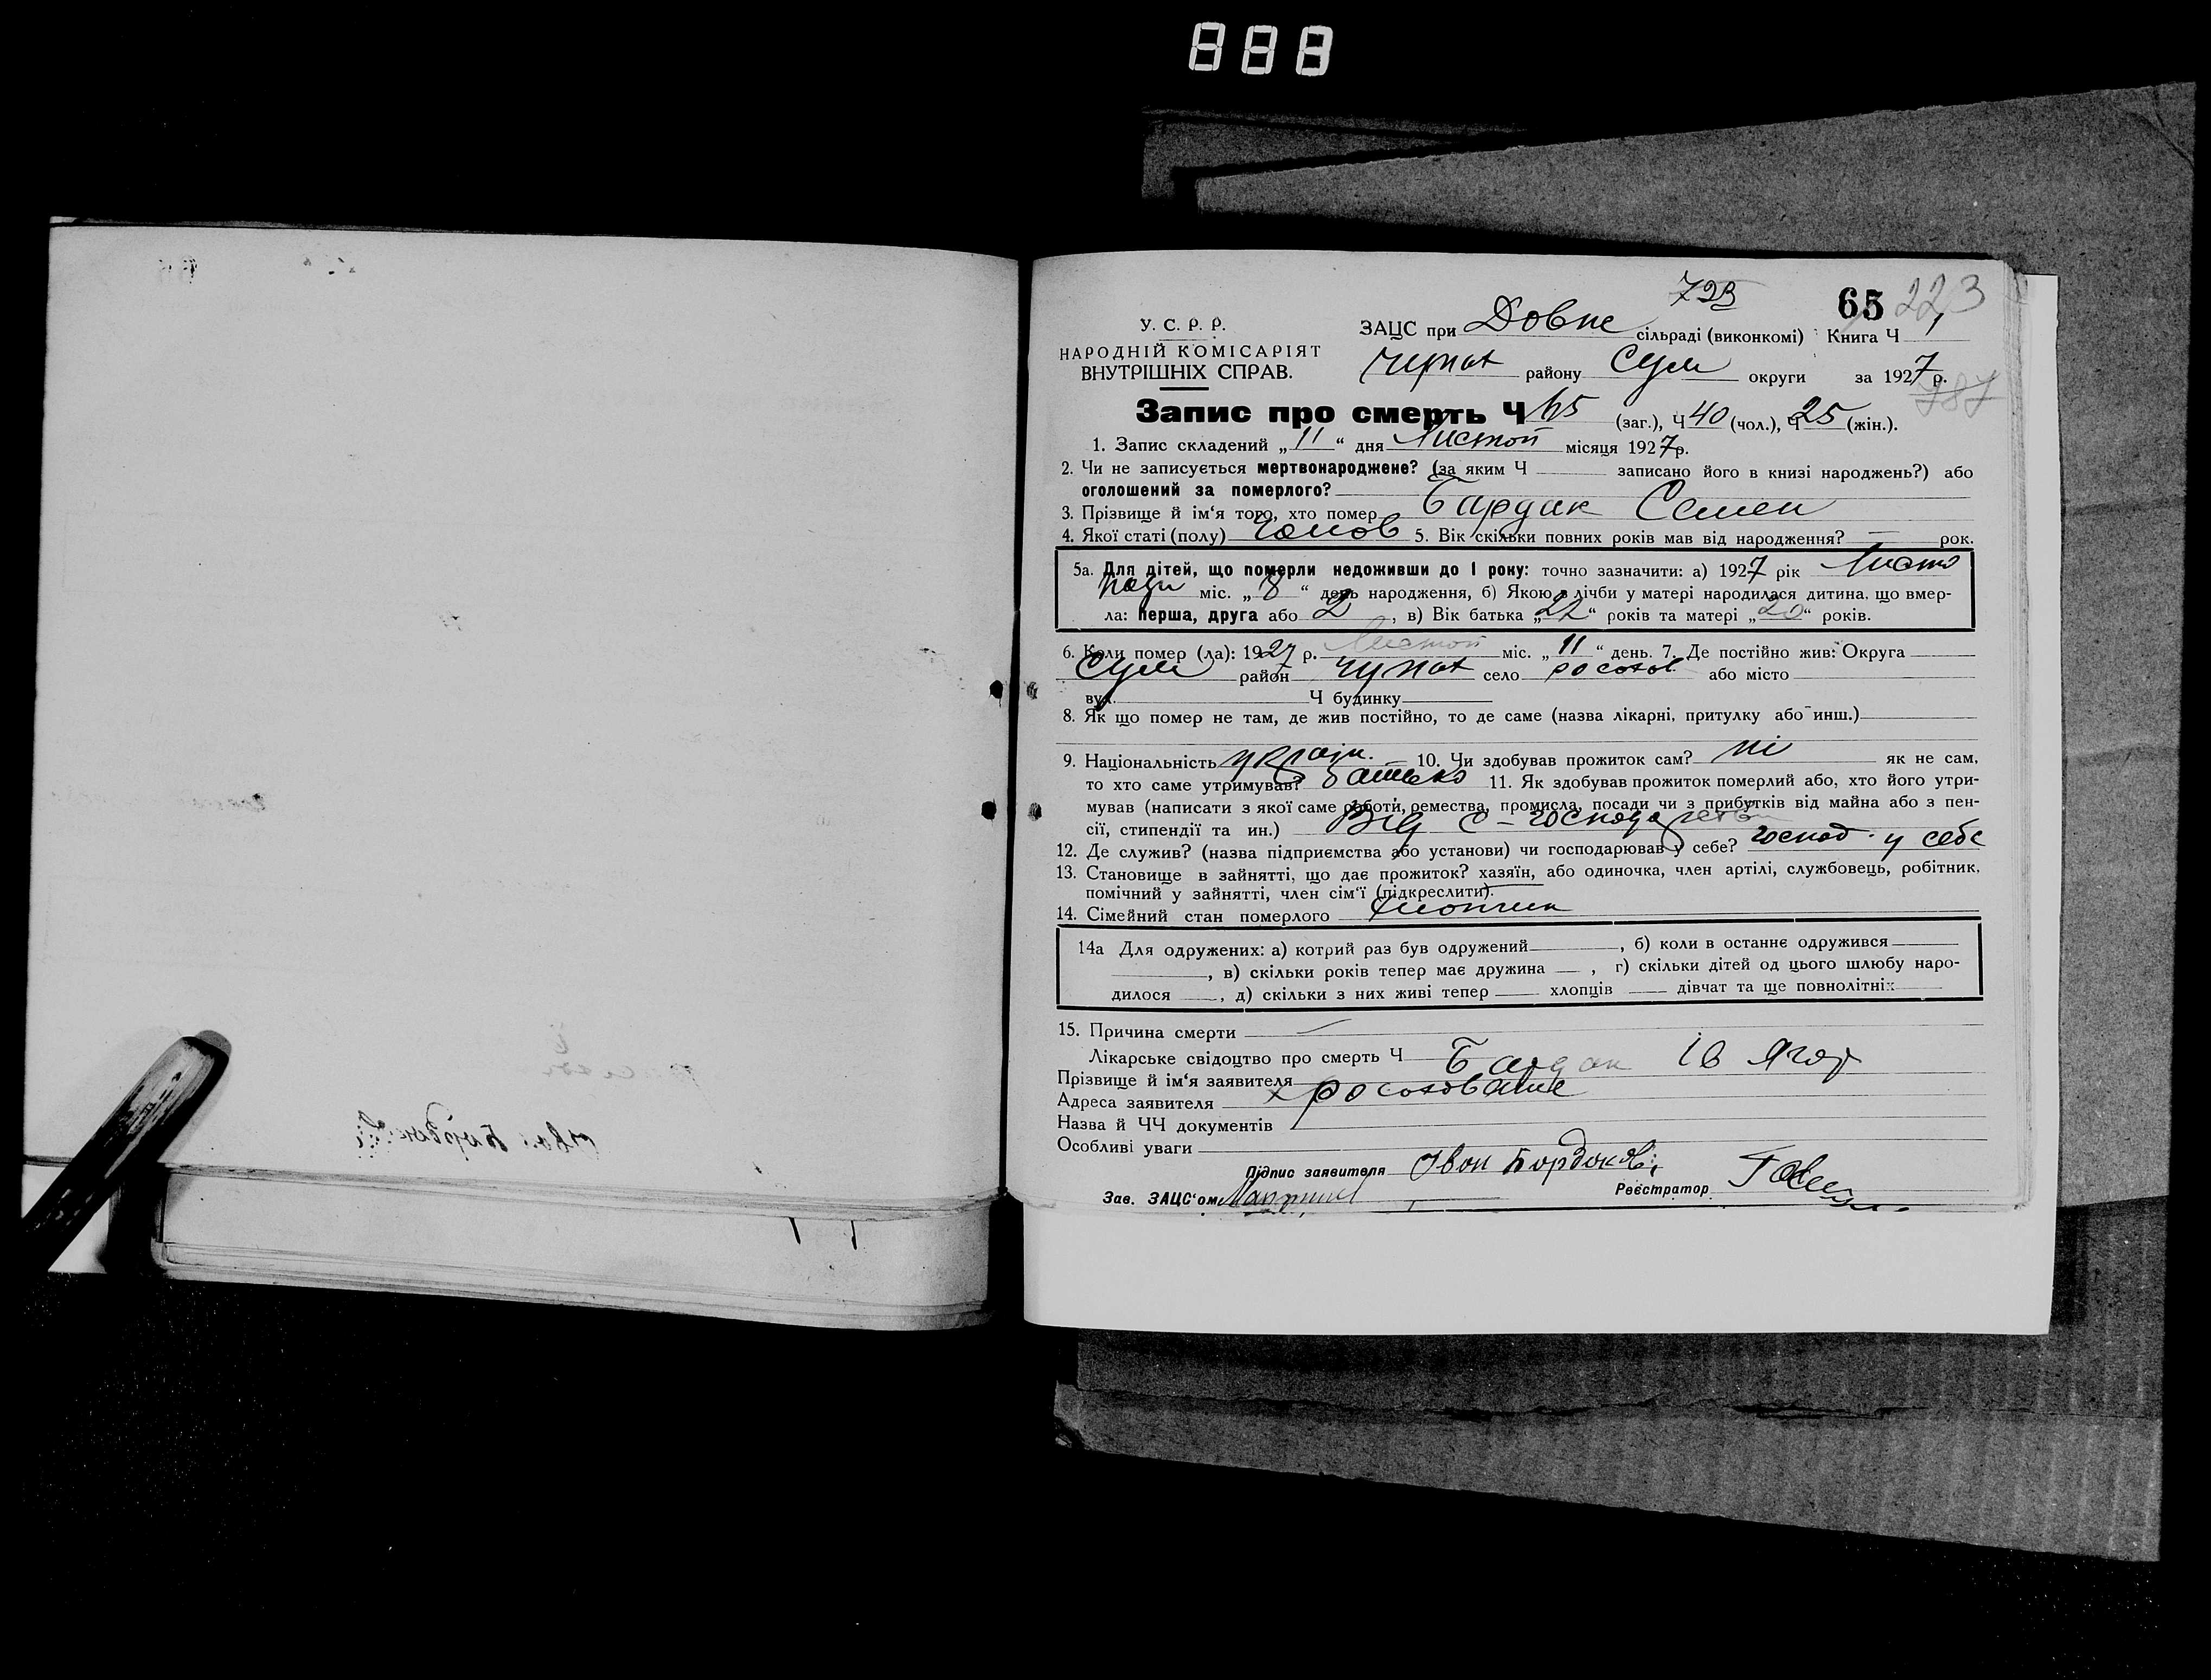 888
723
65 223
У. С. Р. Р.
НАРОДНІЙ КОМІСАРІЯТ
ВНУТРІШНІХ СПРАВ.
ЗАЦС при Довпе сільраді (виконкомі) Книга Ч 1
району Сум округи за 1927 р.
787
Запис про смерть Ч 65 (заг.), Ч 40 (чол.), Ч 25 (жін.).
1. Запис складений „11“ дня Листоп місяця 1927р.
2. Чи не записується мертвонароджене? (за яким Ч записано його в книзі народжень?) або
оголошений за померлого?
3. Прізвище й ім‘я того, хто помер Бардак Семен
4. Якої статі (полу) Чолов 5. Вік скільки повних років мав від народження? — рок.
5а. Для дітей, що померли недоживши до 1 року: точно зазначити: а) 1927 рік Листо
пази міс. „8“ день народження, б) Якою в лічби у матері народилася дитина, що вмер-
ла: перша, друга або 2, в) Вік батька „22“ років та матері „20“ років.
6. Коли помер (ла): 1927 р. Листоп міс. „11“ день. 7. Де постійно жив: Округа
Сум район село росохов або місто
вул. Ч будинку
8. Як що помер не там, де жив постійно, то де саме (назва лікарні, притулку або инш.)
9. Національність україн. 10. Чи здобував прожиток сам? ні як не сам,
то хто саме утримував? батько 11. Як здобував прожиток померлий або, хто його утри-
мував (написати з якої саме роботи, ремества, промисла, посади чи з прибутків від майна або з пен-
сії, стипендії та ин.) Від с-господарства
12. Де служив? (назва підприємства або установи) чи господарював у себе? господ. у себе
13. Становище в зайнятті, що дає прожиток? хазяїн, або одиночка, член артілі, службовець, робітник,
помічний у зайнятті, член сім‘ї (підкреслити).
14. Сімейний стан померлого хлопчик
14а Для одружених: а) котрий раз був одружений , б) коли в останнє одружився
, в) скільки років тепер має дружина — , г) скільки дітей од цього шлюбу наро-
дилося , д) скільки з них живі тепер хлопців дівчат та ще повнолітніх
15. Причина смерти —
Лікарське свідоцтво про смерть Ч
Прізвище й ім‘я заявителя Бардак Ів
Адреса заявителя х росоховате
Назва й ЧЧ документів
Особливі уваги
Підпис заявителя Іван
Зав. ЗАЦС‘ом Реєстратор